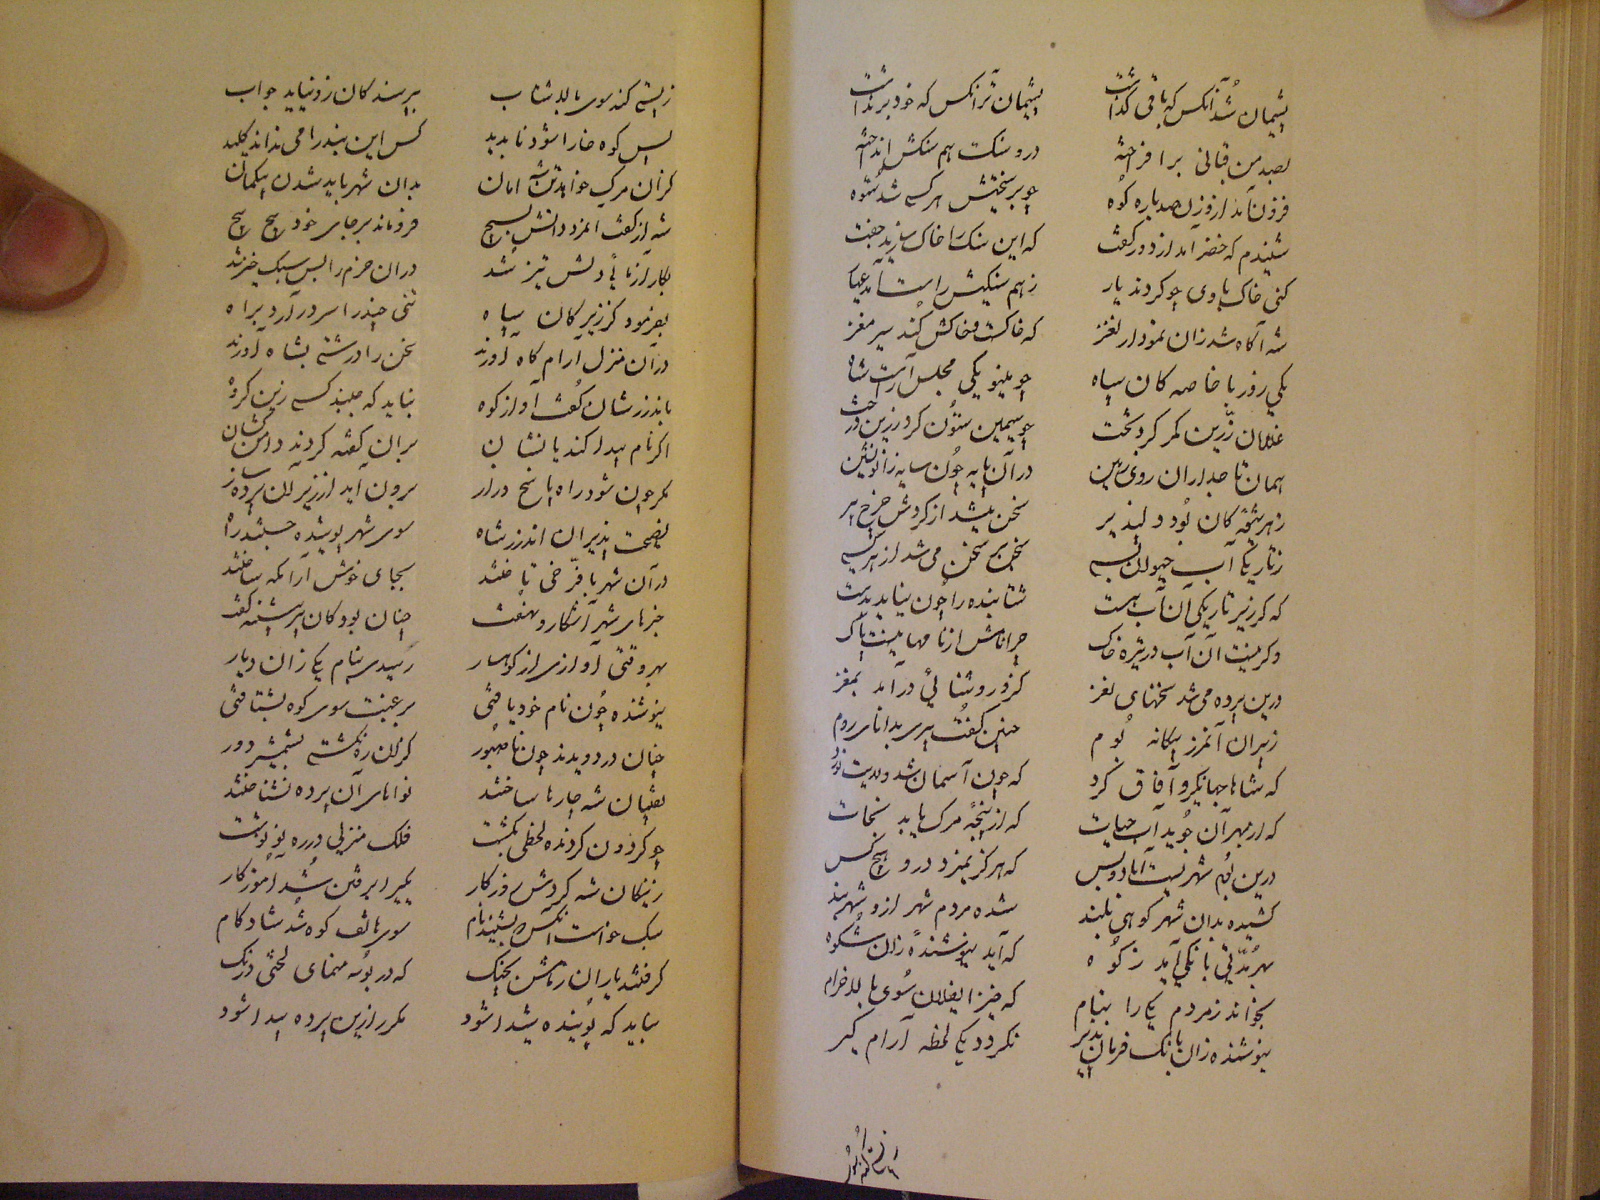 پشیمان شد آنکس که باقی گذاشت پشیمان تر آنکس که خود برنداشت
بصد من قپانی برافراخته درو سنگ هم سنگش انداخته
فزون آمد از وزن صد پاره کوه چو بر سختنش هر کسی شد ستوه
شنیدم که خضر آمد از دور گفت که این سنگ را خاک سازید جفت
کفی خاک با وی چو کردند یار ز هم سنگیش راست آمد عیار
شه آگاه شد زان نمودار نغز که خاکست و خاکش کند سیر مغز
یکی روز با خاصه کان سپاه چو مینو یکی مجلس آراست شاه
غلامان زرین کمر گرد تخت چو سیمین ستون گرد زرین درخت
همان تاجداران روی زمین در آن پایه چون سایه زانو نشین
ز هر شیوه کان بود دلپذیر سخن میشد از گردش چرخ پیر
ز تاریکی آب حیوان بسی سخن بر سخن می شد از هر کسی
که گر زیر تاریکی آن آب هست شتابنده را چون نیاید بدست
وگر نیست آن آب در تیره خاک چرا نامش از نامها نیست پاک
درین پرده می شد سخنهای نغز کزو روشنائی درآمد بمغز
ز پیران آنمرز بیگانه بوم چنین گفت پیری بدانای روم
که شاها جهانگیر و آفاق گرد که چون آسمان شد ولایت نورد
که از بهر آن جوید آب حیات که از پنجه مرگ یابد نجات
درین بوم شهریست آباد و بس که هرگز نمیرد درو هیچکس
کشیده بدان شهر کوهی بلند شده مردم شهر ازو شهربند
بهر مدتی بانگی آید ز کوه که آید نیوشنده زان شکوه
بخواند ز مردم یکی را بنام که خیز ای فلان سوی بالا خرام
نیوشنده زان بانگ فرمان پذیر نگردد یک لحظه آرام گیر
ز پستی کند سوی بالا شتاب بپرسند گان زو نیاید جواب
پس کوه خارا شود ناپدید کس این بند را می نداند کلید
گر از مرگ خواهد تن شه امان بدان شهر باید شدن بیگمان
شه از گفت آنمرد دانش بسیچ فروماند بر جای خود پیچ پیچ
بکار آزمائی دلش تیز شد در آن عزم رایش سبک خیز شد
بفرمود کز زیرکان سپاه تنی چند را سر درآرد براه
در آن منزل آرام گاه آورند سخن را درستی بشاه آورند
باندرزشان گفت آواز کوه نباید که جنبد کسی زین گروه
اگر نام پیدا کند یا نشان بر آن گفته کردند دامن کشان
مگر چون شود راه پاسخ دراز برون آید از زیر آن پرده راز
نصیحت پذیران اندرز شاه سوی شهر پوینده جستند راه
در آن شهر با فرخی تاختند بجای خوش آرامگه ساختند
خبرهای شهر آشکار و نهفت چنان بود کان پیر پیشینه گفت
بهر وقتی آوازی از کوهسار رسیدی بنام یکی زان دیار
نیوشنده چون نام خود یافتی برغبت سوی کوه بشتافتی
چنان در دویدند چون ناصبور کزان ره نگشتی بشمشیر دور
رقیبان شه چاره ها ساختند نواهای آن پرده نشناختند
چو گردون گردنده لختی بگشت فلک منزلی در ره نو نوشت
ز پیکان شه گردش روزگار یکی را برفتن شد آموزگار
سبک خواست آنکس بشنید نام سوی هاتف کوه شد شادکام
گرفتند یاران زمامش بچنگ که در پویه منمای لختی درنگ
نباید که پوینده شیدا شود مگر راز این پرده پیدا شود